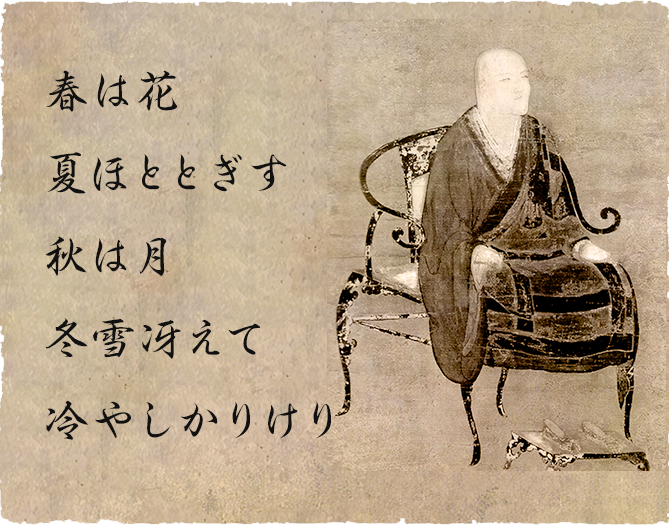 春は花
夏ほととぎす
秋は月
冬雪冴えて
冷やしかりけり